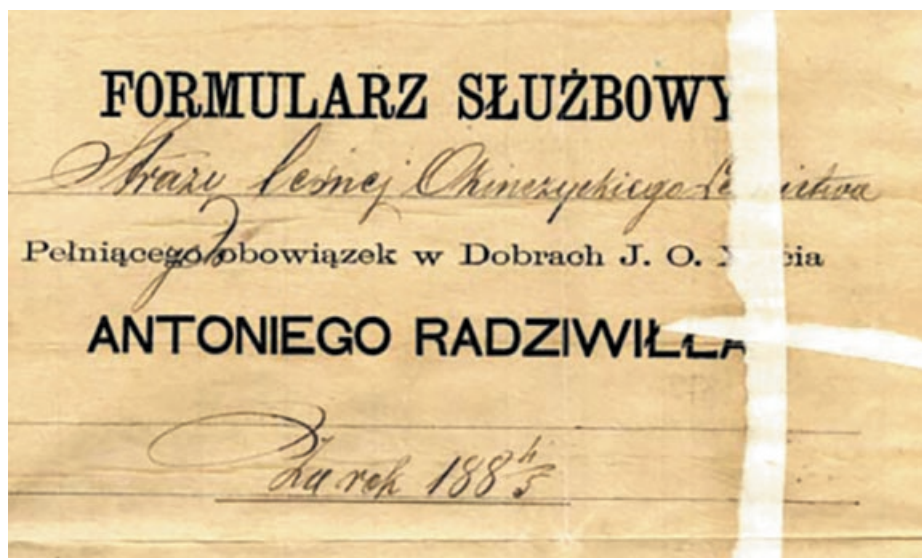 FORMULARZ SŁUŻBOWY
Straży leśnej Okinczyckiego
Pełniącego obowiązek w Dobrach J. O.
ANTONIEGO RADZIWIŁŁA
Za rok 188 4/5